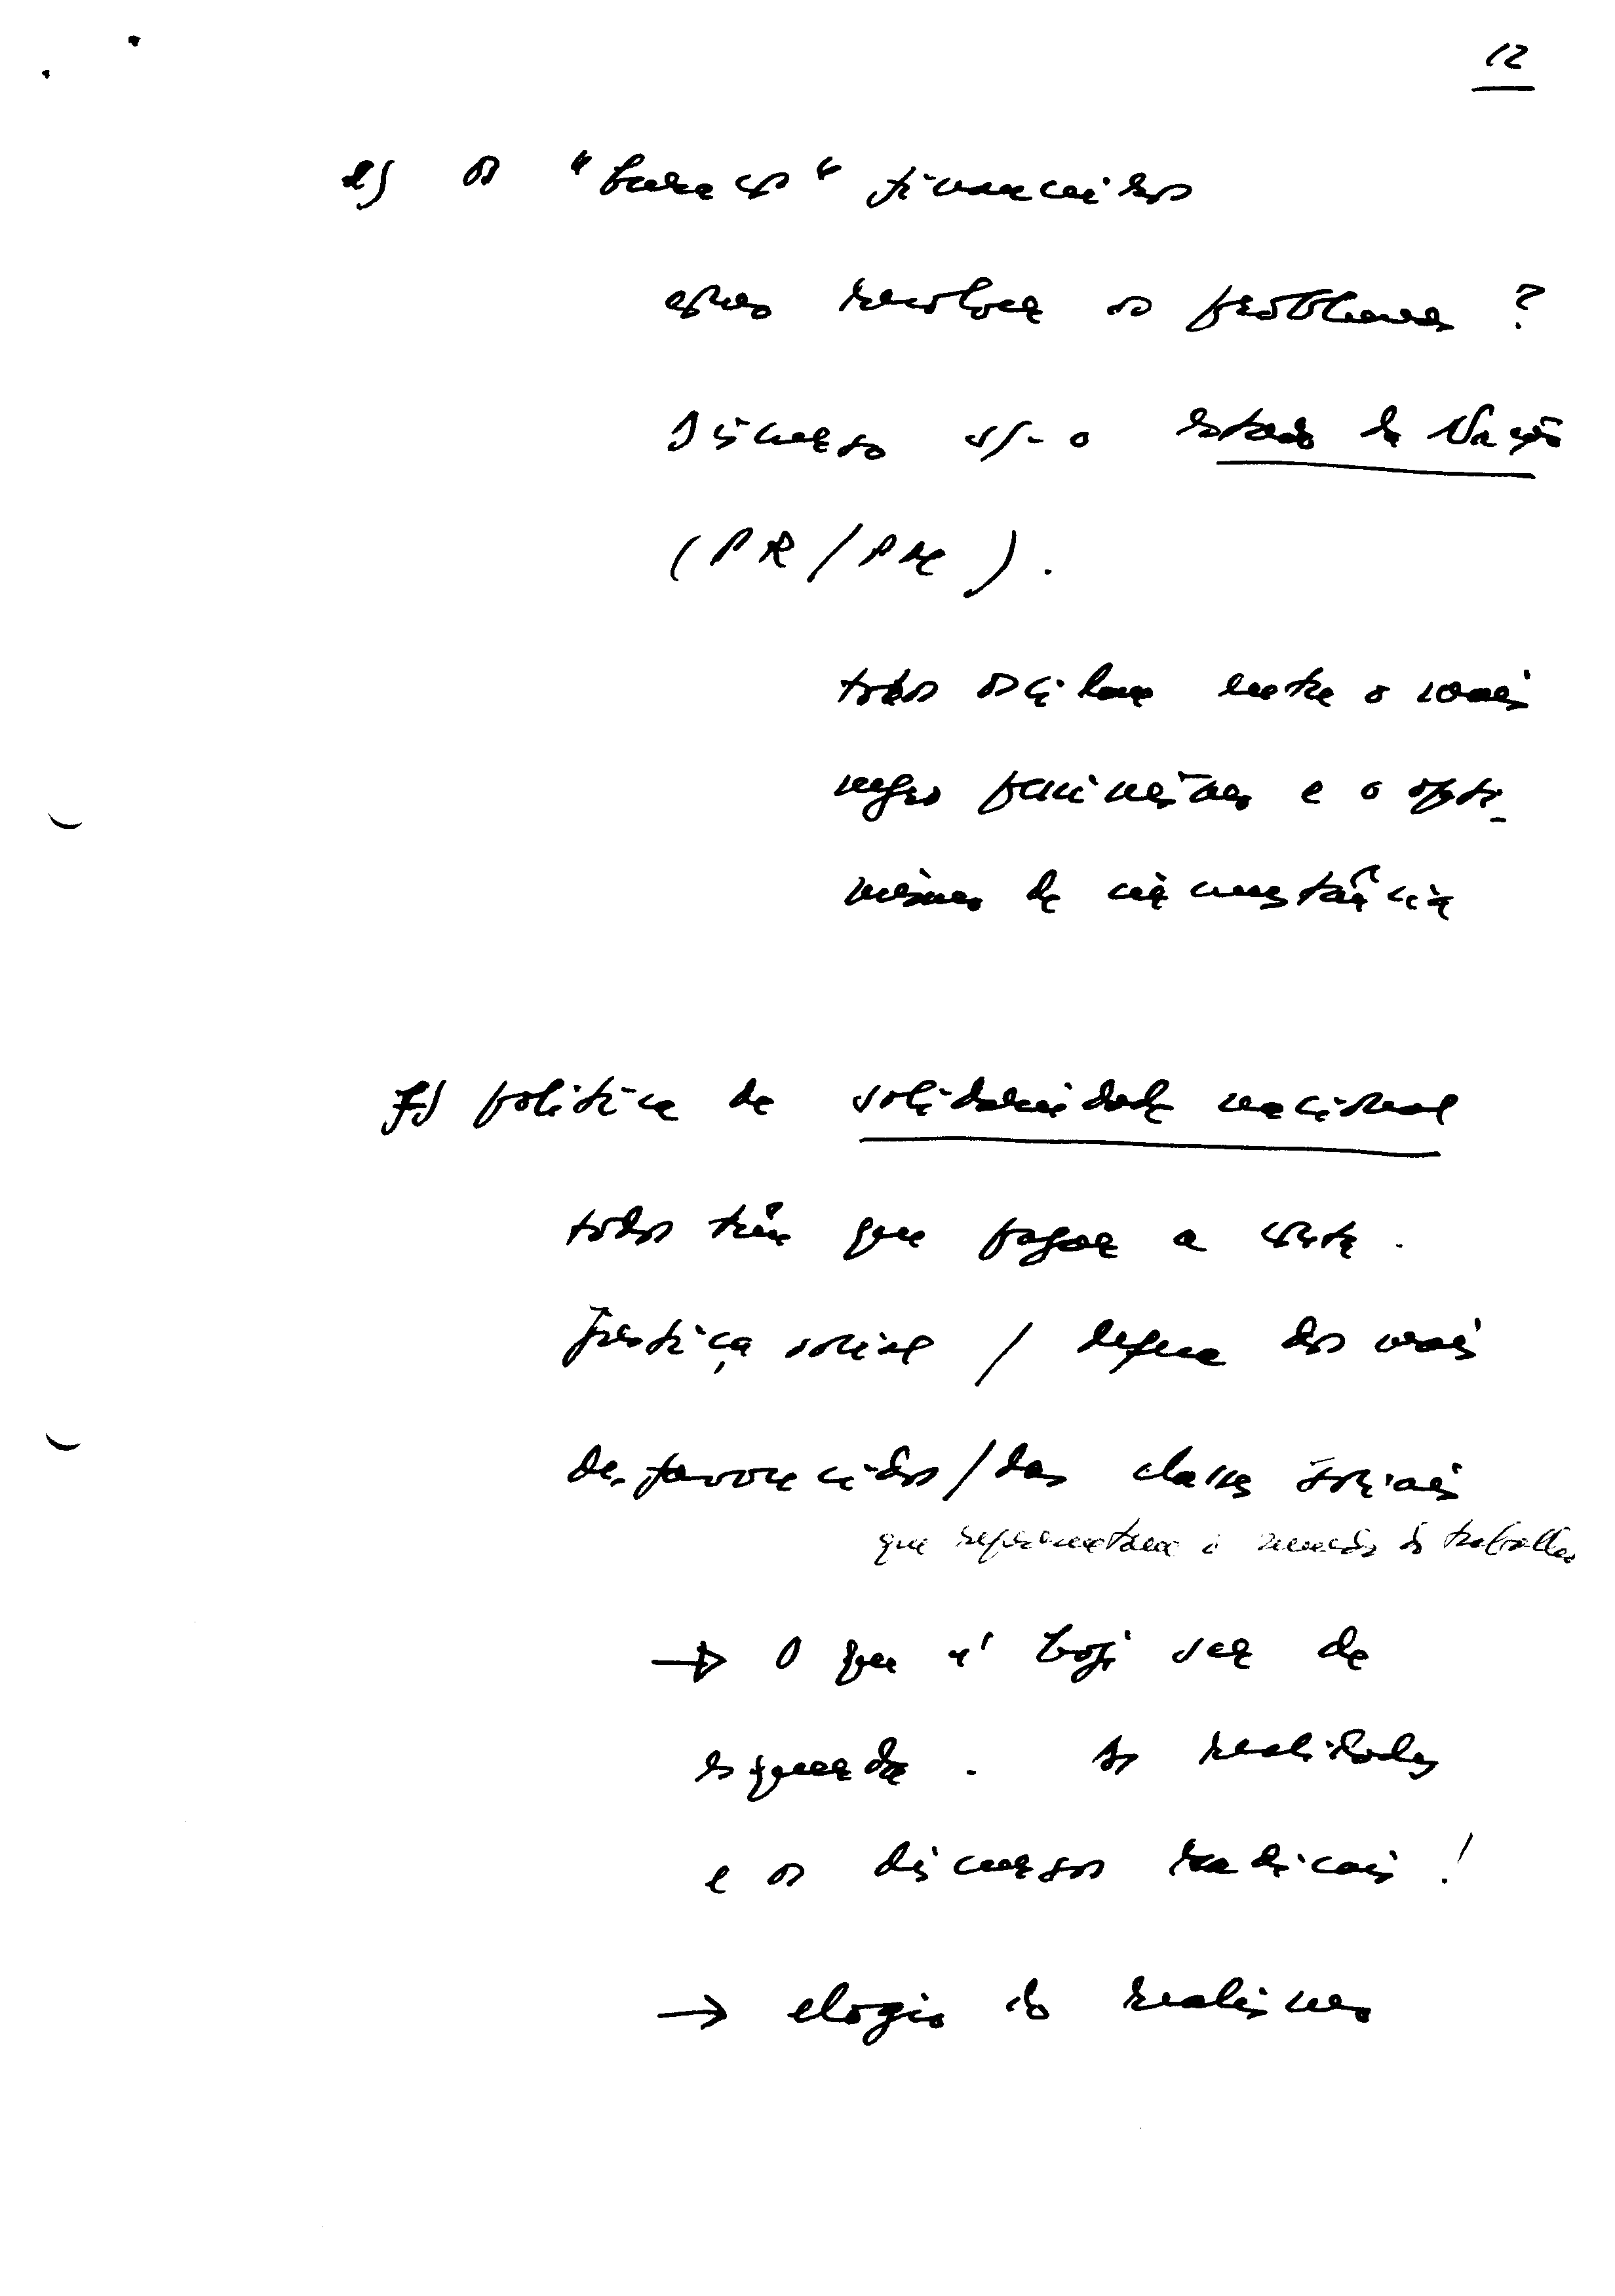 12
e) os "buracos" financeiros
como resolver os problemas ?
Discurso s/- o Estado da Nação
(PR/PM).
todos oscilam entre o mais
negro pessimismo e o opti-
mismo de circunstância
f) política de solidariedade nacional
todos têm que pagar a crise.
Justiça social / defesa dos mais
desfavorecidos / das classes sociais
que representam o mundo do trabalho
→ O que é hoje ser de
esquerda. As realidades
e os discursos radicais !
→ elogio do realismo